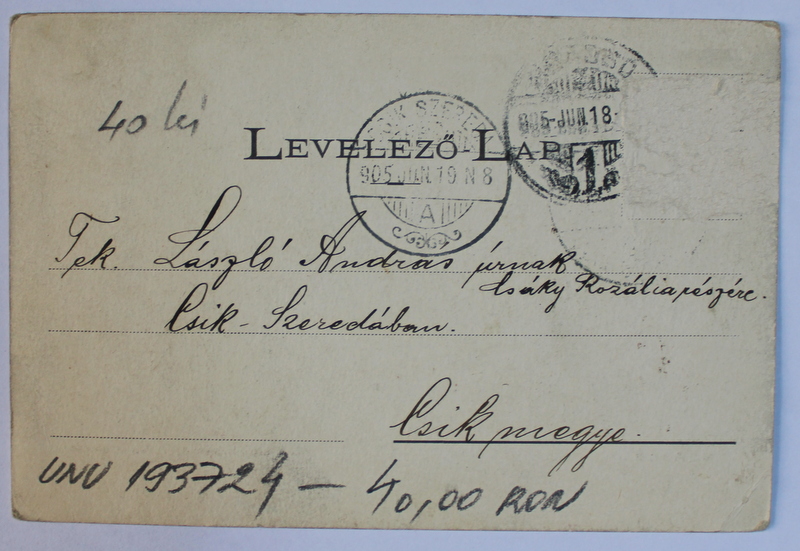 40 lei
LEVELEZŐ LAP
CSIK SZEREDA
905 JUN. 19 N 8
A
BRASSÓ
905-JUN. 18
1
Tek. László András úrnak
Csáky Rozália részére.
Csik-Szeredában.
Csik megye.
UNU 193724 — 40,00 RON